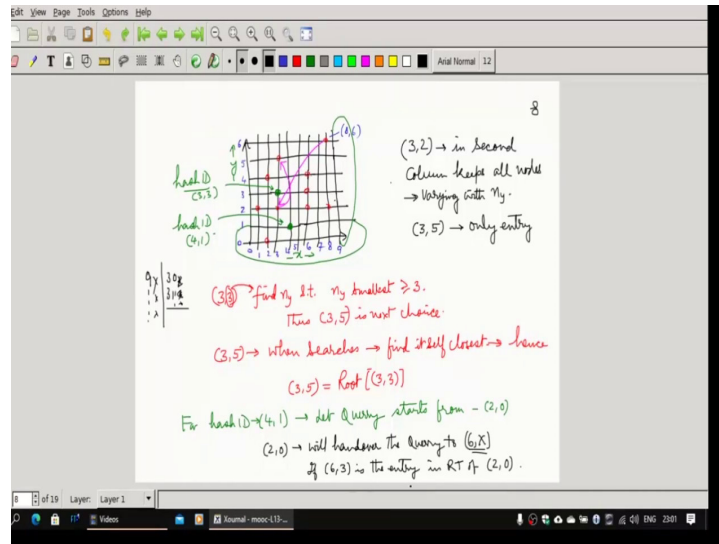 Edit View Page Tools Options Help
Arial Normal 12
8
(8,6)
6
5
4
3
2
1
0
y
0 1 2 3 4 5 6 7 8 9
x
hash ID
(3,3)
hash ID
(4,1)
(3,2) → in second
Column keeps all nodes
→ Varying with ny.
(3,5) → only entry
9x 30x
(3,3) find ny s.t. ny smallest ≥ 3.
Thus (3,5) is next choice.
(3,5) → when searches → find itself closest → hence
(3,5) = Root [(3,3)]
For hash ID → (4,1) → Let Querry starts from – (2,0)
(2,0) → will handover the Querry to (6,X)
If (6,3) is the entry in RT of (2,0).
8 of 19 Layer: Layer 1
Videos
Xournal - mooc-L13-...
ENG 23:01